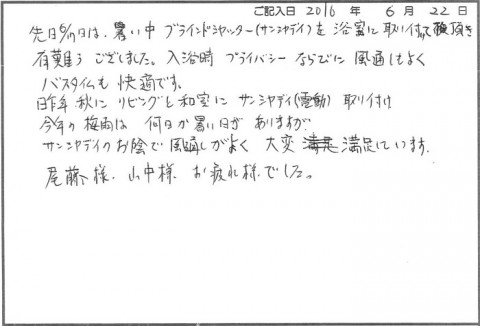 ご記入日 2016 年 6 月 22 日
先日6/17日は、暑い中 ブラインドシャッター(サンシャディ)を 浴室に 取り付けて頂き
有難う ございました。入浴時 プライバシー ならびに 風通しもよく
バスタイムも 快適です。
昨年 秋に リビングと 和室に サンシャディ(電動) 取り付け
今年の 梅雨は 何日か 暑い日が ありますが
サンシャディの お陰で 風通しがよく 大変 満足しています。
尾藤様、山中様、お疲れ様でした。